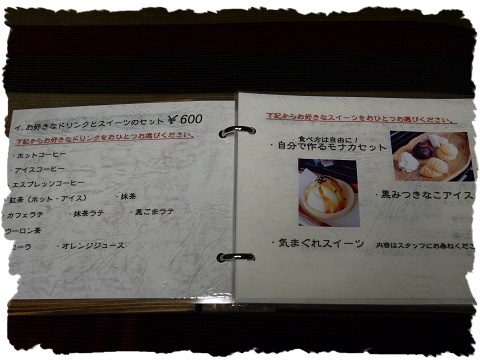 イ.お好きなドリンクとスイーツのセット ￥600
下記からお好きなドリンクをおひとつお選びください。
・ホットコーヒー
・アイスコーヒー
・エスプレッソコーヒー
・紅茶（ホット・アイス） ・抹茶
カフェラテ ・抹茶ラテ ・黒ごまラテ
ウーロン茶
コーラ ・オレンジジュース
下記からお好きなスイーツをおひとつお選びください。
食べ方は自由に！
・自分で作るモナカセット
・黒みつきなこアイス
・気まぐれスイーツ 内容はスタッフにお尋ねくだ